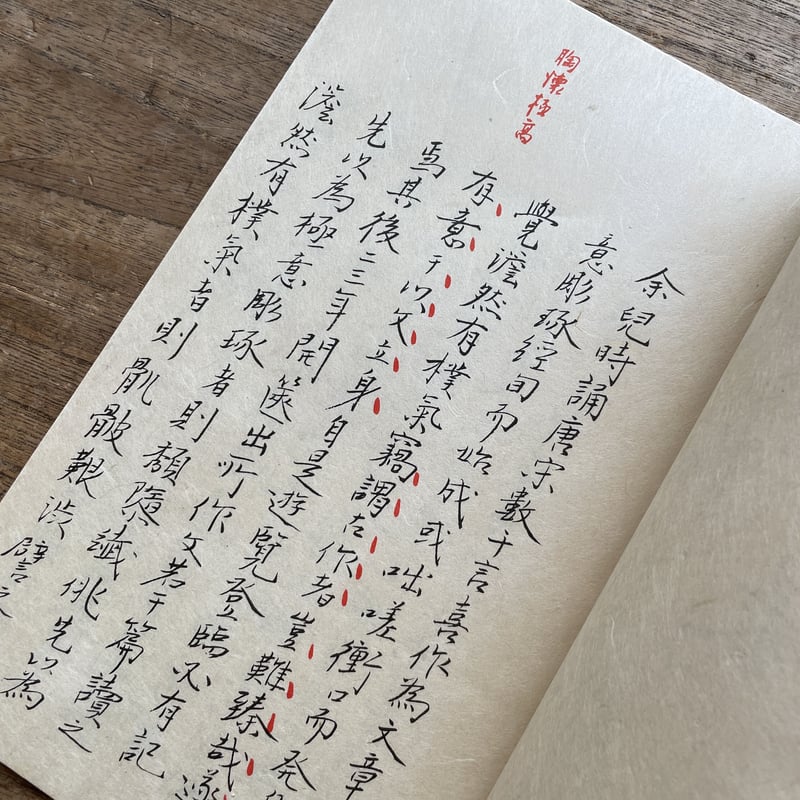 胸懷極高
余兒時誦唐宋數千言喜作為文章
意彫琢經旬而始成或咄嗟衝口而發
覺澹然有樸氣竊謂古作者豈難臻哉遂
有意于以文立身自是遊覽登臨必有記
焉其後二三年開篋出所作文若干篇讀之
先以為極意彫琢者則纖佻先以為
澹然有樸氣者則骫骳艱渋譬之